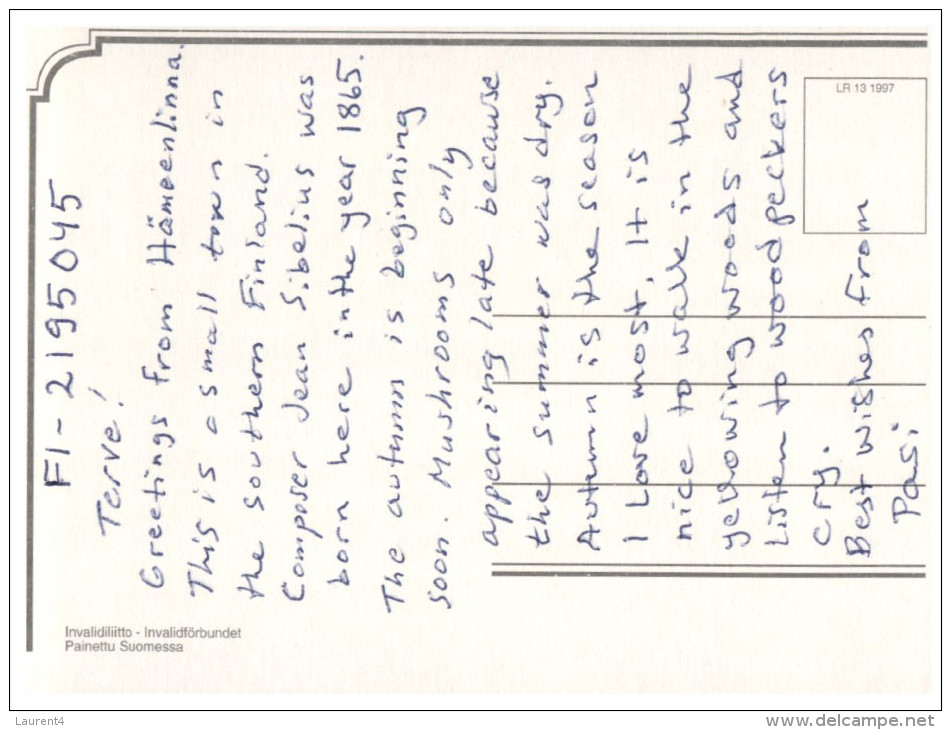 FI-2195045
Terve!
Greetings from Hämeenlinna.
This is a small town in
the southern Finland.
Composer Jean Sibelius was
born here in the year 1865.
The autumn is beginning
soon. Mushrooms only
appearing late because
the summer was dry.
Autumn is the season
I love most. It is
nice to walk in the
yellowing woods and
listen to woodpeckers
cry.
Best wishes from
Pasi
LR 13 1997
Invalidiliitto - Invalidförbundet
Painettu Suomessa
Laurent4
www.delcampe.net